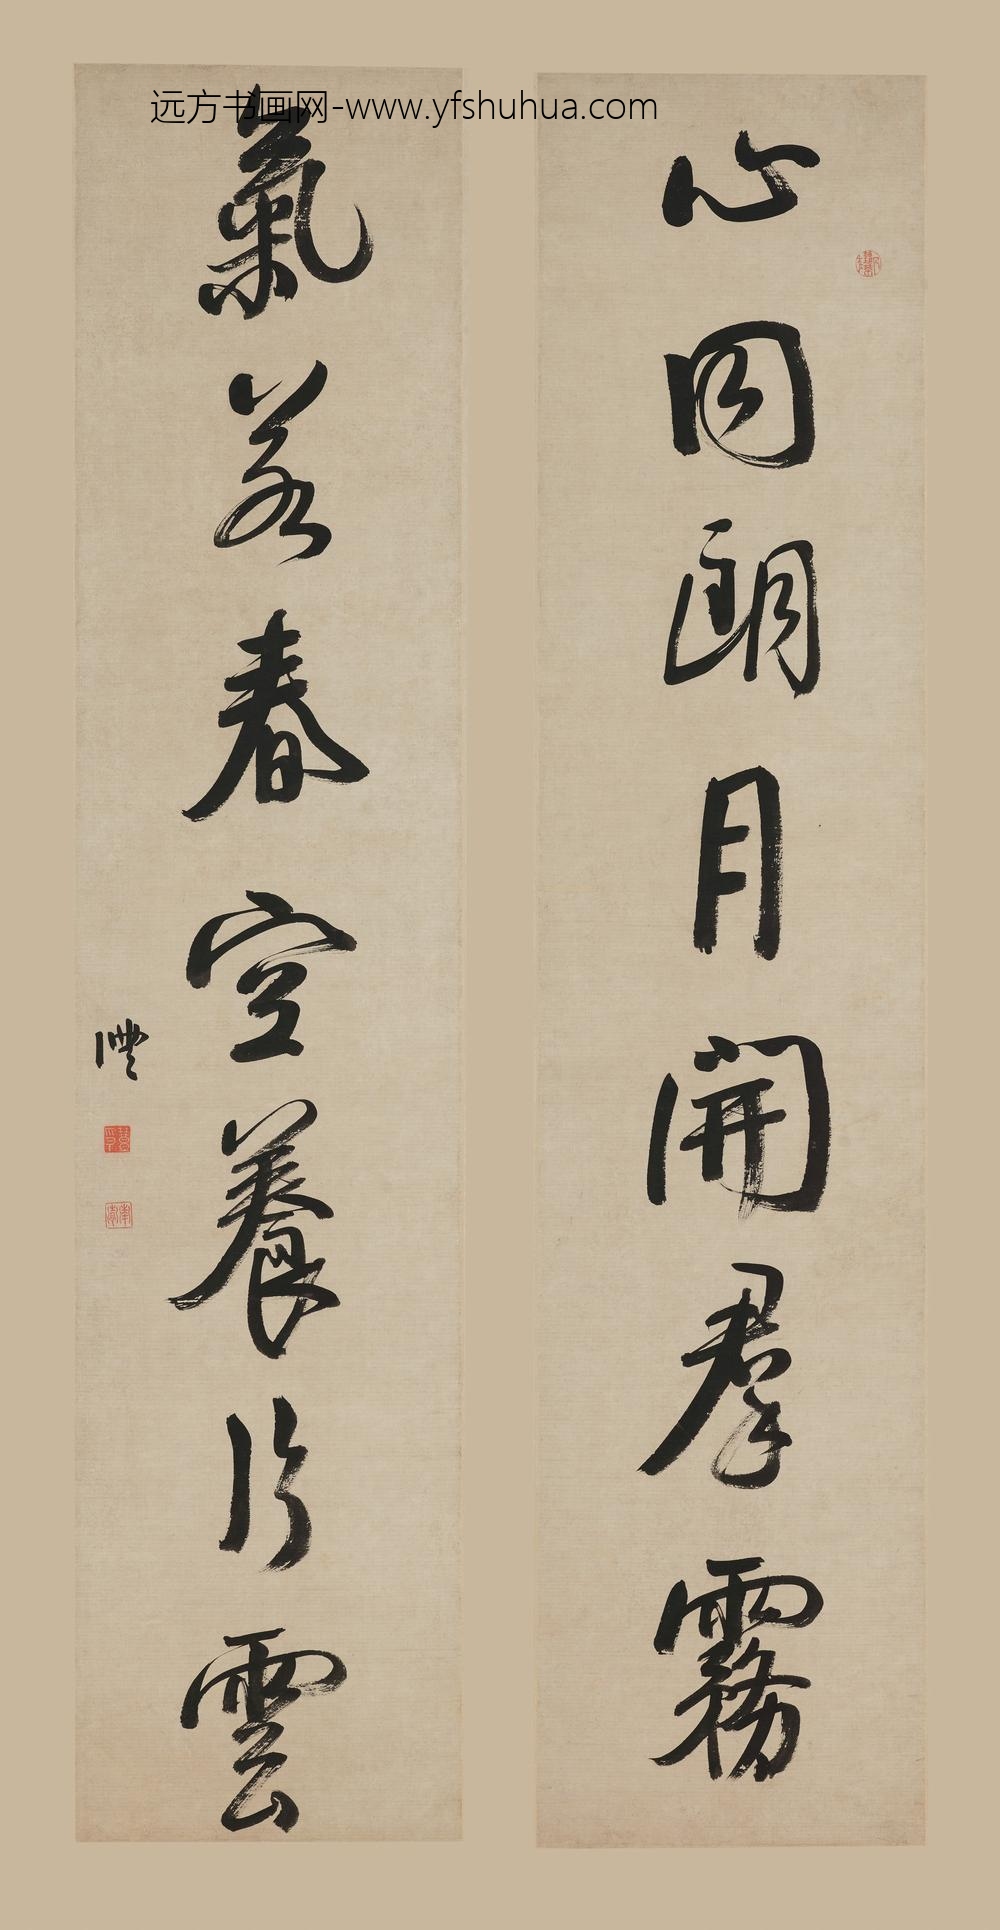 远方书画网-www.yfshuhua.com
心同朗月開羣霧
氣若春空養片雲